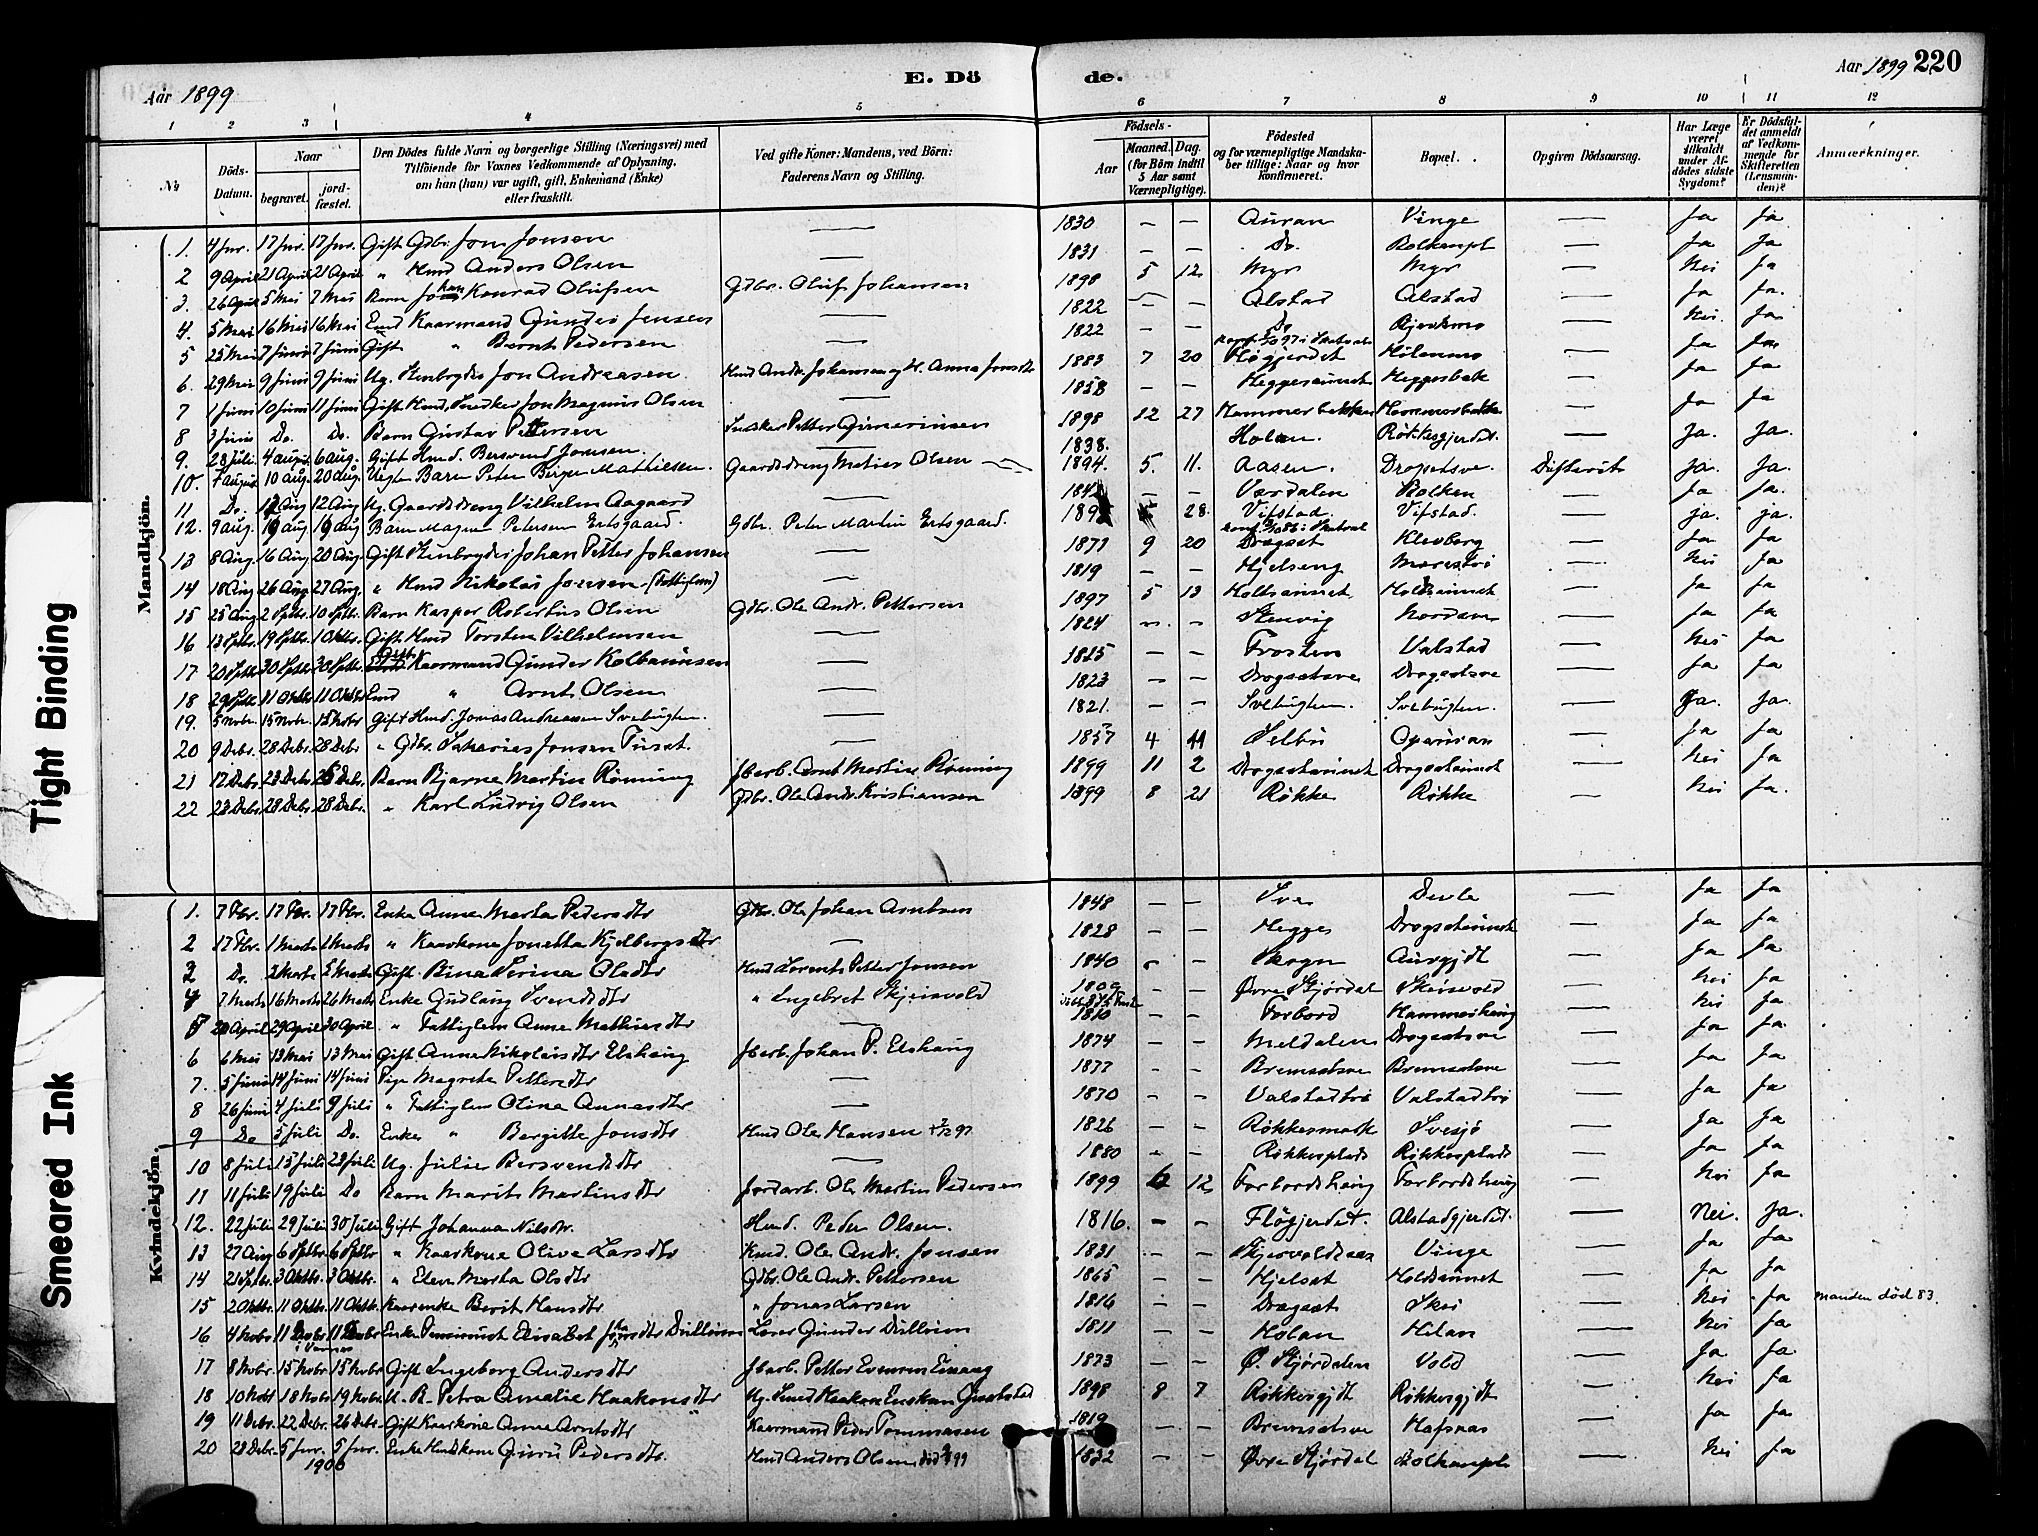 Aar 1899
E. Dö
de.
Aar 1899 220
1 2 3 4 5 6 7 8 9 10 11 12
No Döds-Datum. Naar begravet. jord-fæstet. Den Dödes fulde Navn og borgerlige Stilling (Næringsvei) med Tilföiende for Voxnes Vedkommende af Oplysning, om han (hun) var ugift, gift, Enkemand (Enke) eller fraskilt. Ved gifte Koner: Mandens, ved Börn: Faderens Navn og Stilling. Födsels- Aar Maaned. Dag. (for Börn indtil 5 Aar samt Værnepligtige). Födested og for værnepligtige Mandska-ber tillige: Naar og hvor konfirmeret. Bopæl. Opgiven Dödsaarsag. Har Læge været tilkaldt under Af-dödes sidste Sygdom? Er Dödsfal-det anmeldt af Vedkom-mende for Skifteretten (Lensman-den)? Anmærkninger.
Mandkjön.
1. 4 Jnr. 17 Jnr. 17 Jnr. Gift Gdbr. Jon Jonsen — 1830 — — Auran Vinge — Ja Ja
2 9 April 21 April 21 April " Hmd Anders Olsen — 1831 — — Do. Ja Ja
3. 26 April 5 Mai 7 Mai Barn Johan Konrad Olufsen Gdbr. Oluf Johansen 1898 5 12 Myr Myr — Nei Ja
4. 5 Mai 16 Mai 16 Mai Enkd Kaarmand Gunder Jensen — 1822 — — Alstad Alstad — Ja Ja.
5 25 Mai 7 Juni 7 Juni Gift " Bernt Pedersen — 1822 — — Do — Nei. Ja
6. 29 Mai 9 Juni 9 Juni Ug. Stenbryder Jon Andreasen Hmd Andr. Johansen og H. Anna Jonsdtr 1883 7 20 Høgjerdet — Ja Ja
7 1 Juni 10 Juni 11 Juni Gift Hmd, Snedker Jon Magnus Olsen — 1858 — — Heggesaunet Heggesbak — Ja Ja
8 3 Juni Do. Do. Barn Gustav Pettersen Snedker Petter Gunerinsen 1898 12 27 Hammerbekken Hammerbekken — Ja Ja
9. 28 Juli 4 August 6 Aug. Gift Hmd. Bersvend Jonsen — 1838. Holan. Røkkesgjerdet. — Ja. Ja.
10. 7 August 10 Aug. 20 Aug. Uegte Barn Peter Birger Mathiesen. Gaardsdreng Matias Olsen — 1894. 5. 11. Aasen. Dragsetsve. Difterit Ja. Ja.
11 Do. 12 Aug 12 Aug Ug. Gaardsdreng Vilhelm Aagaard — 1842 — — Værdalen Bolken — Ja Ja.
12. 9 aug. 19 aug 19 aug Barn Magne Petersen Ertsgaard. Gdbr. Peter Martin Ertsgaard. 28. Vifstad. Vifstad. — Ja. Ja.
13 8 Aug. 16 Aug 20 Aug. Gift Stenbryder Johan Petter Johansen — 1871 9 20 Dragset Klevberg — Ja Ja
14 18 Aug 26 Aug 27 Aug. " Hmd Nikolai Jonsen (Fattiglem) — 1819 — — Hjelseng — Nei Ja
15 25 Aug 2 Sptbr. 10 Sptbr. Barn Kaspar Robertus Olsen Gdbr. Ole Andr. Pettersen 1897 5 13 Holtsaunet Holdsaunet — Ja Ja
16 13 Sptbr. 19 Sptbr. 1 Oktbr. Gift Hmd Torsten Vilhelmsen — 1824 — — Stenvig — Ja Ja
17 20 Sptbr 30 Sptbr. 30 Sptbr. Gift Kaarmand Gunder Kolbansen — 1825 — — Frosten Valstad — Nei Ja
18 29 Sptbr. 11 Oktbr. 11 Oktbr Enkd " Arnt Olsen — 1823 — — Dragsetsve Dragsetsve — Ja Ja
19. 5 Novbr. 15 Novbr. 15 Novbr Gift Hmd. Jonas Andreasen Svebugten. — 1821. — — Svebugten. Svebugten. — Ja. Ja.
20 9 Debr. 28 Debr. 28 Debr " Gdbr. Sakarias Jonsen Tuset. — 1857 4 11 Selbu — Ja Ja
21 12 Debr. 23 Debr. 26 Debr. Barn Bjarne Martin Rønning Jbarb. Arnt Martin Rønning 1899 11 2 Dragsetaunet Dragsetaunet — Nei Ja
22 22 Debr. 28 Debr. 28 Debr. " Karl Ludvig Olsen Gdbr. Ole Andr. Kristiansen 1899 8 21 Røkke Røkke — Nei Ja.
Kvindekjön.
1. 7 Fbr. 17 Fbr. 17 Fbr. Enke Anne Marta Pedersdtr Gdbr. Ole Johan Arntsen 1848 — — Sve Devle — Ja Ja
2 17 Fbr. 1 Marts 1 Marts " Kaarkone Jonetta Kjelbergsdtr — 1828 — — Hegge Dragsetaunet — Ja Ja
3 Do. 2 Marts 2 Marts Gift. Bina Serina Olsdtr Hmd Lorents Petter Jonsen 1840 — — Skogn Aurgjdt — Ja Ja
4 7 Marts 16 Marts 26 Marts Enke Gudlaug Svendsdtr " Ingebret Skjeisvold 1809 — — Øvre Stjørdal — Nei Ja
5 20 April 29 April 30 April. " Fattiglem Anne Mathiasdtr — 1810 — — Forbord Hammerhaug — Nei Ja
6 6 Mai 13 Mai 13 Mai Gift Anna Nikolaisdtr Elshaug Jbarb. Johan P. Elshaug 1874 — — Meldalen Dragsetsve — Ja Ja.
7. 5 Juni 14 Juni 14 Juni Pige Magreta Pettersdtr — 1877 — — Bremsetsve Bremsetsve — Ja Ja
8 26 Juni 4 Juli 9 Juli " Fattiglem Oline Annasdtr — 1870 — — Valstadbrø Valstadbrø — Ja Ja
9 Do 5 Juli Do. Enke " Bergitte Jonsdtr Hmd Ole Hansen 1826 — — Røkkesmark Svesjø — Ja Ja
10 8 Juli 15 Juli 23 Juli Ug. Julie Bersvendsdtr — 1880 — — Røkkesplads Røkkesplads — Ja Ja
11 11 Juli 19 Juli Do Barn Marit Martinsdtr Jordarb. Ole Martin Pedersen 1899 6 12 Forbordshaug Forbordshaug — Nei Ja
12. 22 Juli 29 Juli 30 Juli Gift Johanna Nilsdtr. Hmd. Peder Olsen. 1816. — — Fløgjerdet. Alstadgjerdet. — Nei. Ja.
13 27 Aug 6 Sptbr. 6 Sptbr " Kaarkone Olive Larsdtr Kmd. Ole Andr. Jonsen 1831 — — Vinge — Ja Ja
14 21 Sptbr. 3 Oktbr. 3 Oktbr. " Elen Marta Olsdtr Gdbr. Ole Andr. Pettersen 1865 — — Hjelset Holdsaunet — Ja Ja
15 2 Oktbr. 11 Oktbr. 11 Oktbr. Kaarenke Berit Hansdtr " Jonas Larsen 1816 — — Dragset Skei — Nei Ja Manden død 83.
16 4 Novbr 11 Novbr 11 Novbr Enke Elisabet Jonsdtr Lærer Gunder 1811 — — Holan Holan — Nei Ja
17 8 Novbr. 15 Novbr. 15 Novbr. Gift Ingeborg Andersdtr Jbarb. Petter Evensen 1873 — — Ø. Stjørdalen Vold — Ja Ja
18 10 Novbr 18 Novbr 19 Novbr. U. B. Petra Amalie Haakonsdtr Ug. Smed Haakon 1898 8 7 Røkkesgjdt Røkkesgjdt — Nei Ja
19 11 Debr. 22 Debr. 26 Debr. Gift Kaarkone Anne Arntsdtr Kaarmand Peder Tommasen 1819 — — Bremsetsve Hafsaas — Ja Ja
20 28 Debr. 5 Jnr. 5 Jnr. Enke Hmdkone Guru Pedersdtr. Hmd Anders Olsen død 99 1832 — — Øvre Stjørdal — Nei Ja
1900
Tight Binding
Smeared Ink